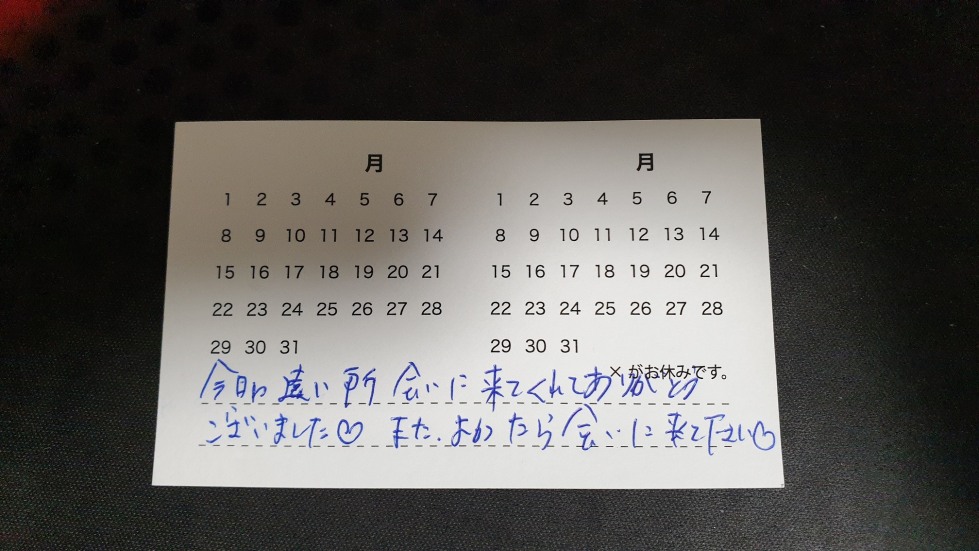 月 月
1 2 3 4 5 6 7 1 2 3 4 5 6 7
8 9 10 11 12 13 14 8 9 10 11 12 13 14
15 16 17 18 19 20 21 15 16 17 18 19 20 21
22 23 24 25 26 27 28 22 23 24 25 26 27 28
29 30 31 29 30 31
× がお休みです。
今日は遠い所 会いに来てくれてありがとう
ございました♡ また、よかったら会いに来て下さい♡